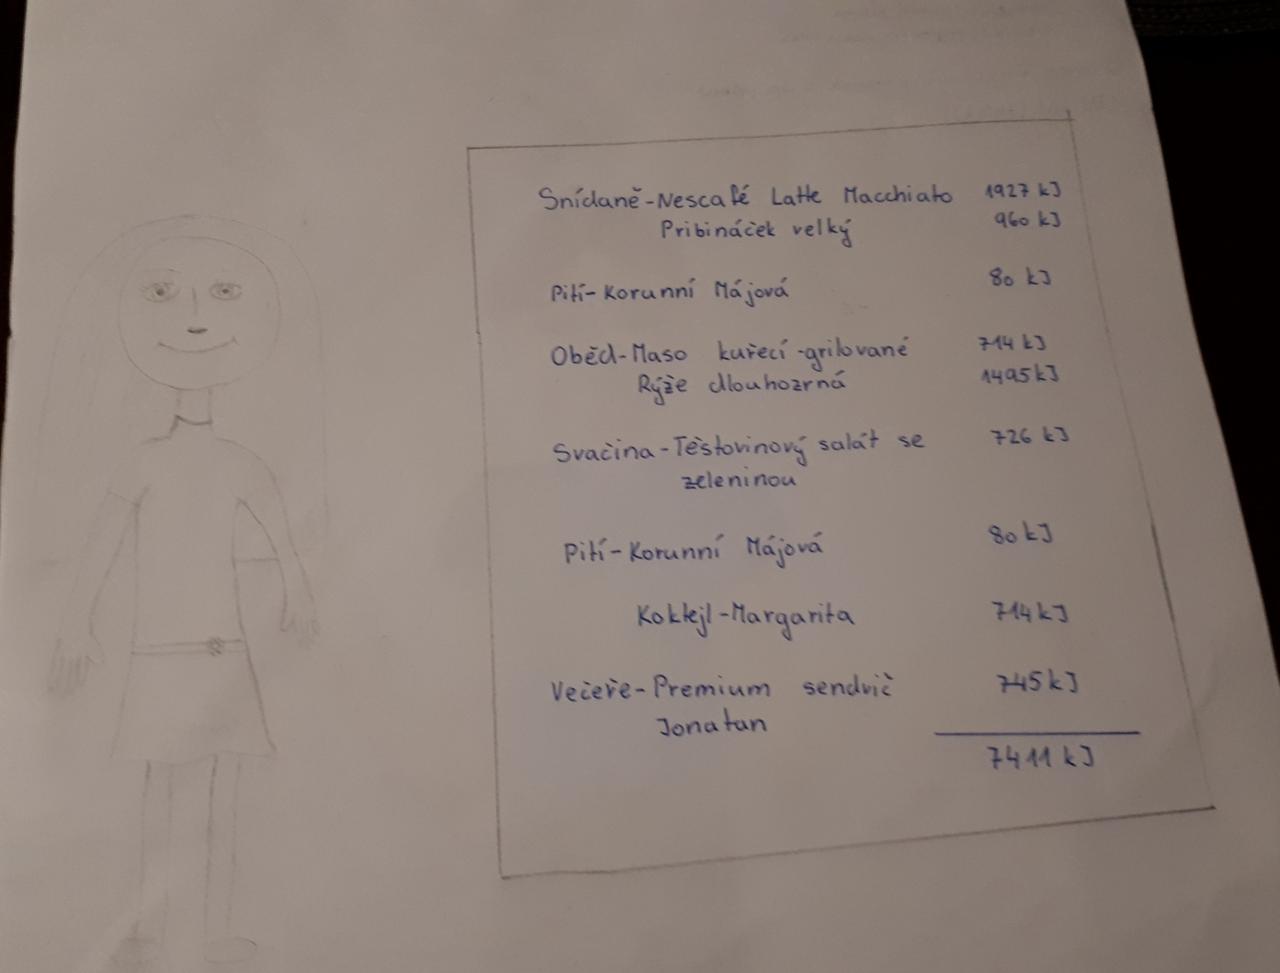 Snídaně-Nescafé Latte Macchiato 1927 kJ
Pribináček velký 960 kJ
Pití-Korunní Májová 80 kJ
Oběd-Maso kuřecí-grilované 714 kJ
Rýže dlouhozrná 1495 kJ
Svačina-Těstovinový salát se 726 kJ
zeleninou
Pití-Korunní Májová 80 kJ
Koktejl-Margarita 714 kJ
Večeře-Premium sendvič 745 kJ
Jonatan
7411 kJ